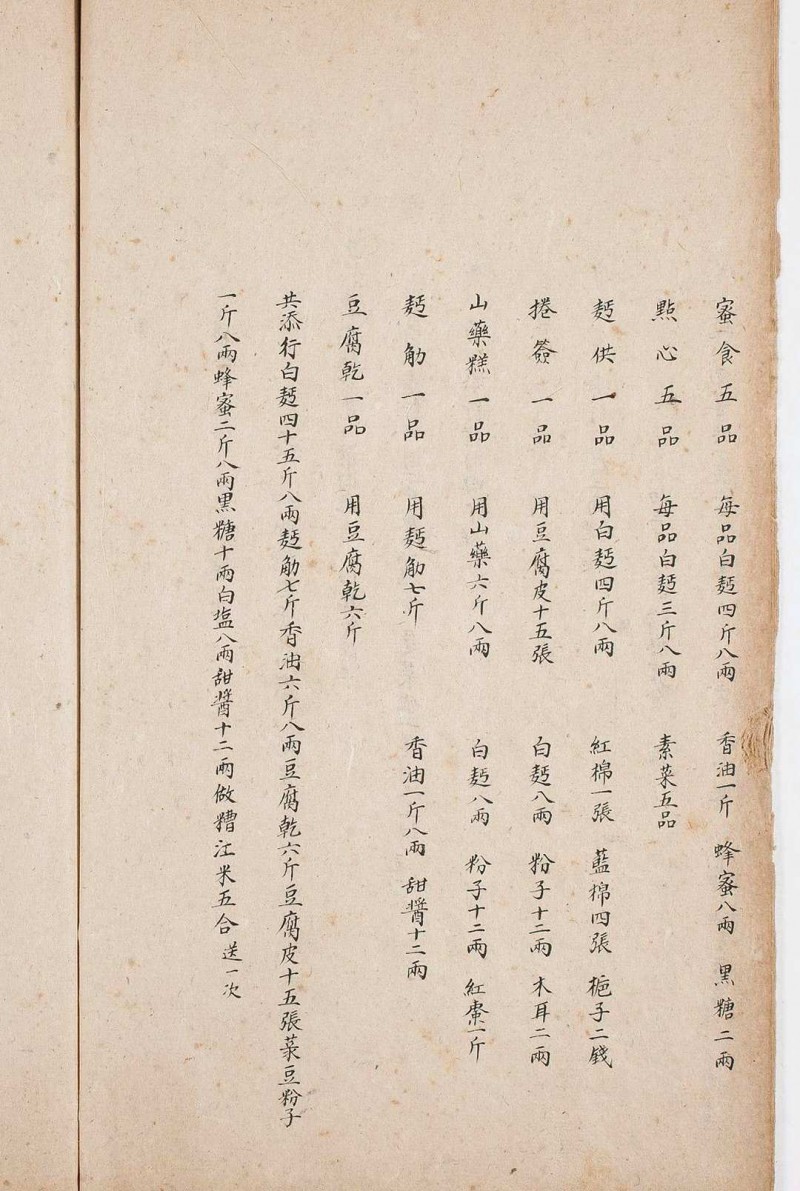 蜜食五品　每品白麪四斤八兩　香油一斤　蜂蜜八兩　黑糖二兩
點心五品　每品白麪三斤八兩　素菜五品
麪供一品　用白麪四斤八兩　紅棉一張　藍棉四張　梔子二錢
捲簽一品　用豆腐皮十五張　白麪八兩　粉子十二兩　木耳二兩
山藥糕一品　用山藥六斤八兩　白麪八兩　粉子十二兩　紅棗一斤
麪觔一品　用麪觔七斤　香油一斤八兩　甜醬十二兩
豆腐乾一品　用豆腐乾六斤
共添行白麪四十五斤八兩麪觔七斤香油六斤八兩豆腐乾六斤豆腐皮十五張菉豆粉子
一斤八兩蜂蜜二斤八兩黑糖十兩白塩八兩甜醬十二兩做糟江米五合送一次